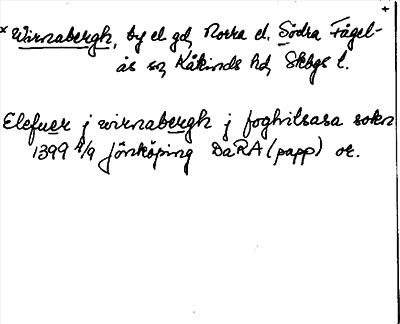 +
× Wärnabergh, by el. gd, Norra el. Södra Fågel-
ås sn, Kåkinds hd, Skbgs l.
Elefuer j wirnabergh j foghvlsasa sokn
1399 4/9 Jönköping DaRA (papp) or.